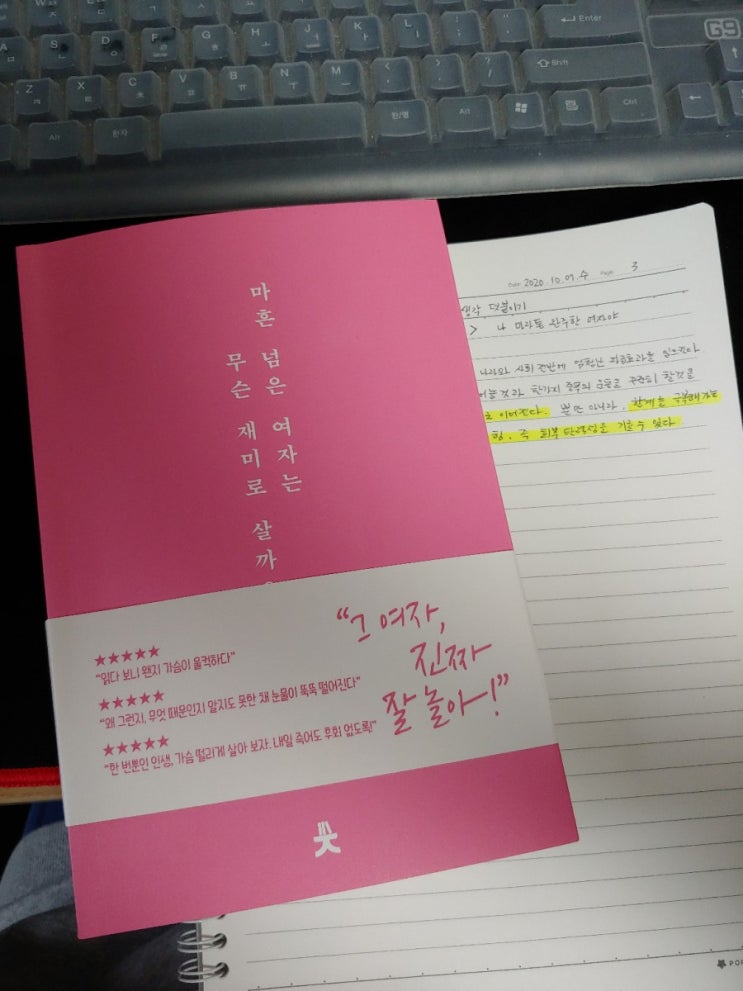 Enter
G9
A
S
D
F
G
H
J
K
L
Shift
Z
X
C
V
B
N
M
Alt
한자
한/영
Alt
Ctrl
마흔 넘은 여자는
무슨 재미로 살까
"그 여자,
진짜
잘 놀아~!"
★★★★★
"읽다 보니 왠지 가슴이 울컥하다"
★★★★★
"왜 그런지, 무엇 때문인지 알지도 못한 채 눈물이 뚝뚝 떨어진다"
★★★★★
"한 번뿐인 인생, 가슴 떨리게 살아 보자. 내일 죽어도 후회 없도록!"
Date 2020.10.07.수 Page 3
생각 덧붙이기
> 나 마라톤 완주한 여자야
나라와 사회 전반에 엄청난 파급효과를 일으킨다
한가지 종목의 운동을 꾸준히 할것을
로 이어진다. 뿐만 아니라, 한계를 극복해가는
힘, 즉 회복탄력성을 기를 수 있다